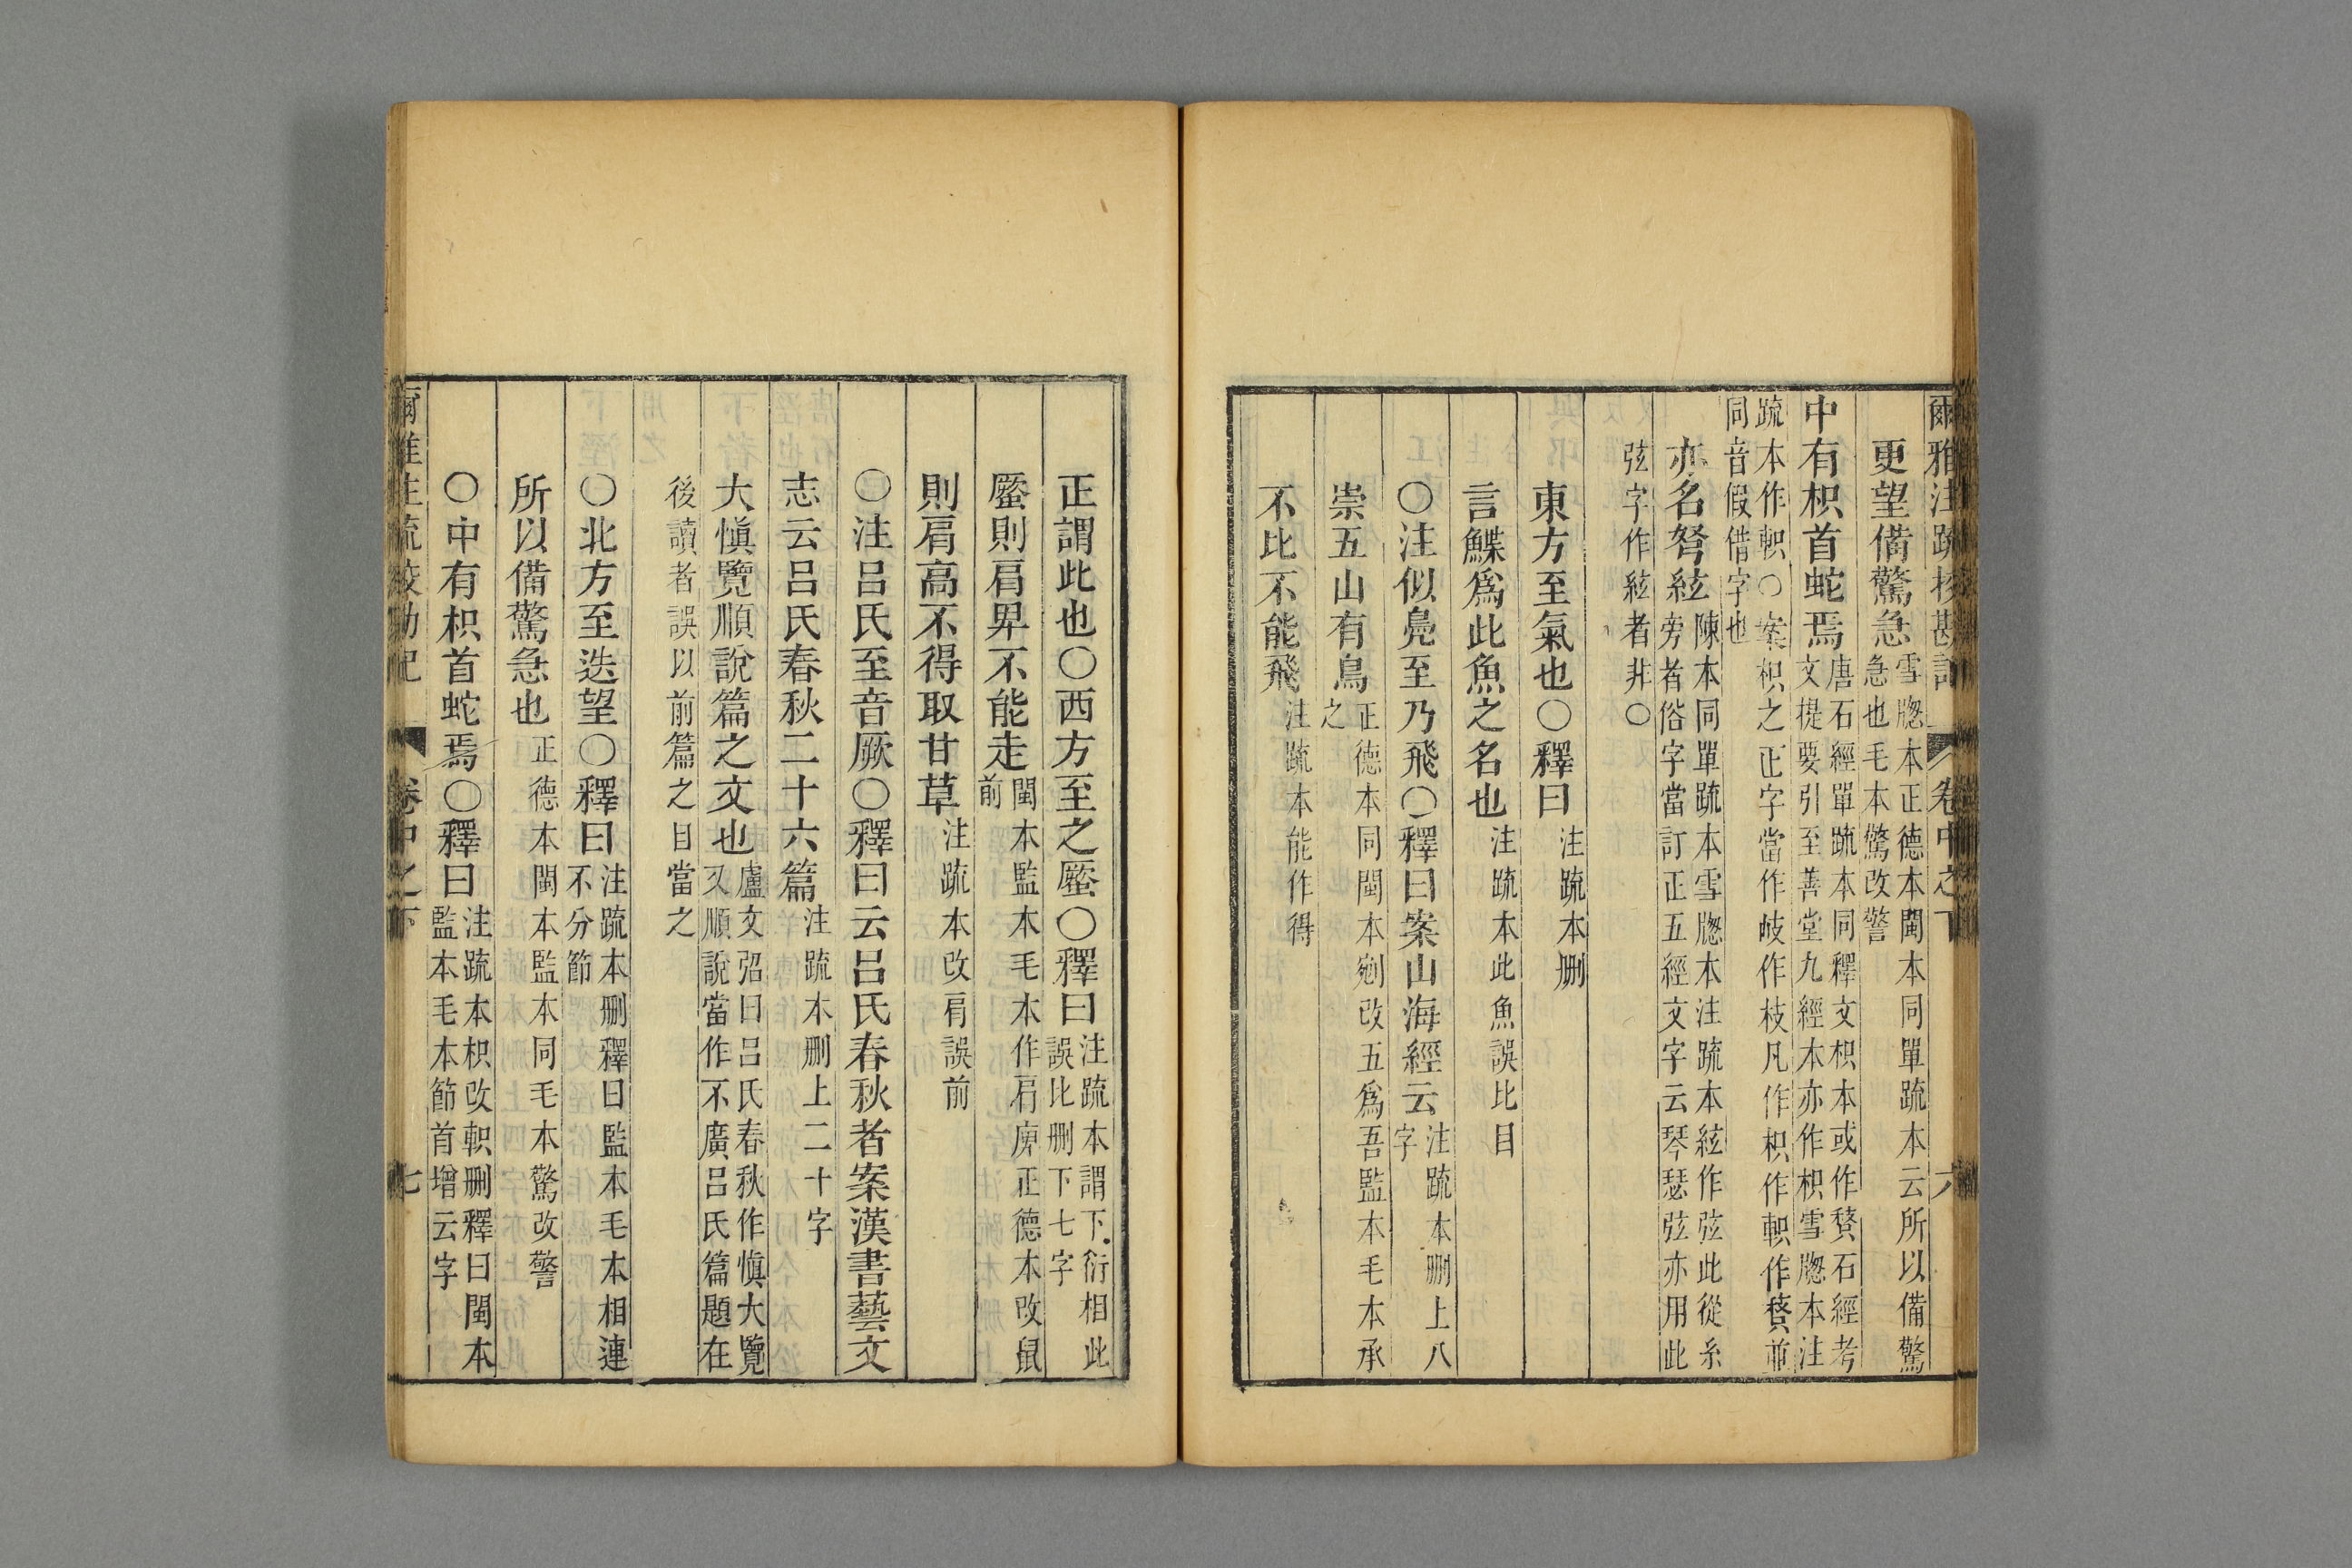 爾雅注疏校勘記 卷中之下 六
更望備驚急 雪牕本正德本閩本同單疏本云所以備驚
急也毛本驚改警
中有枳首蛇焉 唐石經單疏本同釋文枳本或作𨍏石經考
文提要引至善堂九經本亦作枳雪牕本注
疏本作軹○案枳之正字當作岐作枝凡作枳作軹作𨍏並
同音假借字也
亦名弩絃 陳本同單疏本雪牕本注疏本絃作弦此從糸
旁者俗字當訂正五經文字云琴瑟弦亦用此
弦字作絃者非○
東方至氣也○釋曰 注疏本刪
言鰈爲此魚之名也 注疏本此魚誤比目
○注似鳧至乃飛○釋曰案山海經云 注疏本刪上八
字
崇五山有鳥 正德本同閩本剜改五爲吾監本毛本承
之
不比不能飛 注疏本能作得
正謂此也○西方至之蟨○釋曰 注疏本謂下衍相此
誤比刪下七字
蟨則肩卑不能走 閩本監本毛本作肩庳正德本改鼠
前
則肩高不得取甘草 注疏本改肩誤前
○注呂氏至音厥○釋曰云呂氏春秋者案漢書藝文
志云呂氏春秋二十六篇 注疏本刪上二十字
大慎覽順說篇之文也 盧文弨曰呂氏春秋作慎大覽
又順說當作不廣呂氏篇題在
後讀者誤以前篇之目當之
○北方至迭望○釋曰 注疏本刪釋曰監本毛本相連
不分節
所以備驚急也 正德本閩本監本同毛本驚改警
○中有枳首蛇焉○釋曰 注疏本枳改軹刪釋曰閩本
監本毛本節首增云字
爾雅注疏校勘記 卷中之下 七